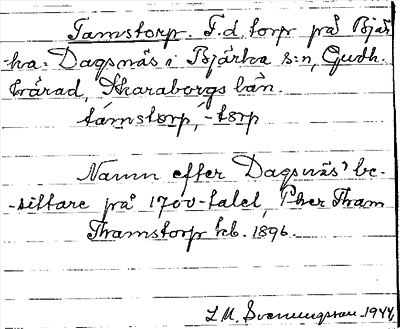 Tamstorp. F.d. torp på Bjär-
ka-Dagsnäs i Bjärka s:n, Gudh.
härad, Skaraborgs län.
támstørp, -tørp
Namn efter Dagsnäs' be-
sittare på 1700-talet, Pher Tham
Thamstorp kb. 1896.
L.M. Svenungsson. 1944.